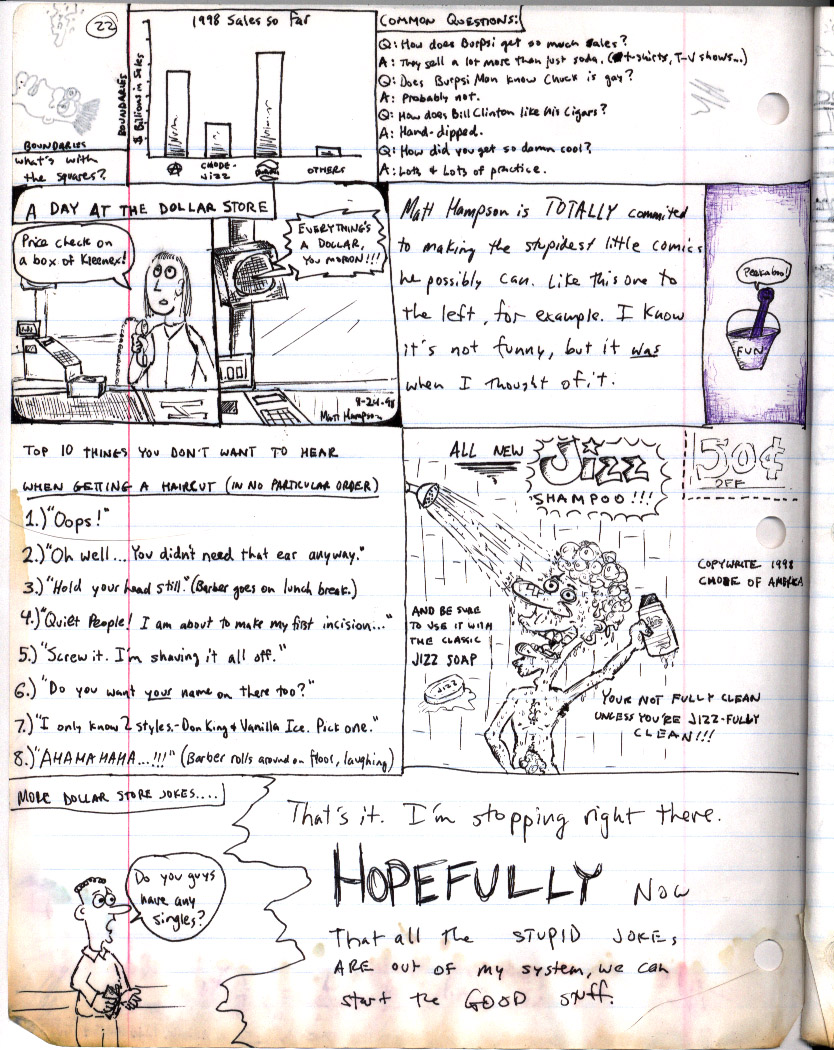 22
1998 Sales so far
BOUNDARIES
$ Billions in Sales
CHODE-
JIZZ
OTHERS
BOUNDARIES
what's with
the squares?
COMMON QUESTIONS:
Q: How does Burpsi get so much sales?
A: They sell a lot more than just soda. (t-shirts, T-V shows...)
Q: Does Burpsi Man know Chuck is gay?
A: Probably not.
Q: How does Bill Clinton like his Cigars?
A: Hand-dipped.
Q: How did you get so damn cool?
A: Lots & Lots of practice.
A DAY AT THE DOLLAR STORE
Price check on
a box of Kleenex!
EVERYTHING'S
A DOLLAR,
YOU MORON!!!
8-24-98
Matt Hampson
Matt Hampson is TOTALLY commited
to making the stupidest little comics
he possibly can. Like this one to
the left, for example. I know
it's not funny, but it was
when I thought of it.
Peekaboo!
FUN
TOP 10 THINGS YOU DON'T WANT TO HEAR
WHEN GETTING A HAIRCUT (IN NO PARTICULAR ORDER)
1.) "Oops!"
2.) "Oh well... You didn't need that ear anyway."
3.) "Hold your head still." (Barber goes on lunch break.)
4.) "Quiet People! I am about to make my first incision..."
5.) "Screw it. I'm shaving it all off."
6.) "Do you want your name on there too?"
7.) "I only know 2 styles.-Don King & Vanilla Ice. Pick one."
8.) "AHAHAHAHA...!!!" (Barber rolls around on floor, laughing)
ALL NEW
JIZZ
SHAMPOO!!!
50¢
OFF
COPYWRITE 1998
CHODE OF AMERICA
AND BE SURE
TO USE IT WITH
THE CLASSIC
JIZZ SOAP
JIZZ
YOUR NOT FULLY CLEAN
UNLESS YOU'RE JIZZ-FULLY
CLEAN!!!
MORE DOLLAR STORE JOKES....
Do you guys
have any
singles?
That's it. I'm stopping right there.
HOPEFULLY NOW
That all the STUPID JOKES
ARE out OF my system, we can
start the GOOD stuff.